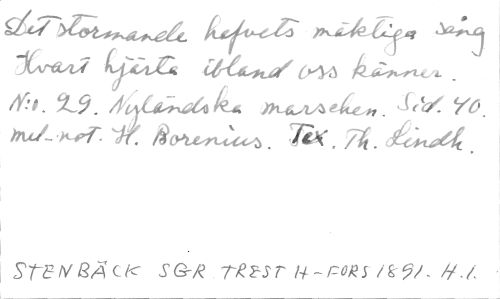 Det stormande hafvets mäktiga sång
Hvart hjärta ibland oss känner.
N:o. 29. Nyländska marschen. Sid. 40.
mel-not. H. Borenius. Tex. Th. Lindh.
STENBÄCK SGR TREST H-FORS 1891. H.1.